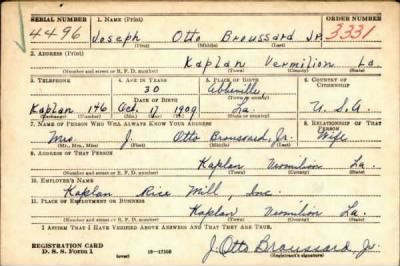 SERIAL NUMBER 1. NAME (Print) ORDER NUMBER
4496 Joseph Otto Broussard Jr. 3331
(First) (Middle) (Last)
2. ADDRESS (Print)
Kaplan Vermilion La.
(Number and street or R. F. D. number) (Town) (County) (State)
3. TELEPHONE 4. AGE IN YEARS 5. PLACE OF BIRTH 6. COUNTRY OF CITIZENSHIP
30 Abbeville,
DATE OF BIRTH (Town or county)
Kaplan 146 Oct. 1909 La. U.S.A.
(Exchange) (Number) (Mo.) (Day) (Yr.) (State or country)
7. NAME OF PERSON WHO WILL ALWAYS KNOW YOUR ADDRESS 8. RELATIONSHIP OF THAT PERSON
Mrs J. Otto Broussard, Jr. Wife
(Mr., Mrs., Miss) (First) (Middle) (Last)
9. ADDRESS OF THAT PERSON
Kaplan Vermilion La.
(Number and street or R. F. D. number) (Town) (County) (State)
10. EMPLOYER'S NAME
Kaplan Rice Mill, Inc.
11. PLACE OF EMPLOYMENT OR BUSINESS
Kaplan Vermilion La.
(Number and street or R. F. D. number) (Town) (County) (State)
I AFFIRM THAT I HAVE VERIFIED ABOVE ANSWERS AND THAT THEY ARE TRUE.
REGISTRATION CARD
D. S. S. Form 1 (over) 16—17105 J. Otto Broussard Jr.
(Registrant's signature)